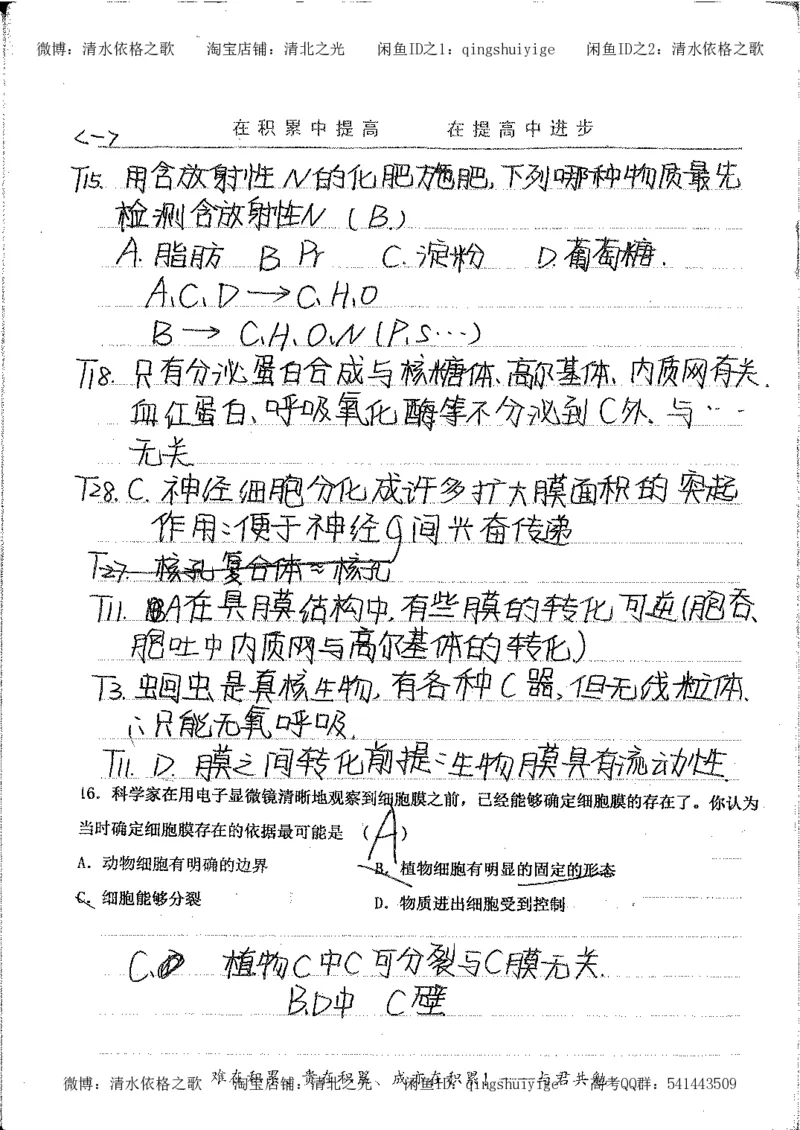 微博：清水依格之歌 淘宝店铺：清北之光 闲鱼ID之1：qingshuiyige 闲鱼ID之2：清水依格之歌
在积累中提高 在提高中进步
<一>
T15. 用含放射性N的化肥施肥,下列哪种物质最先
检测含放射性N (B.)
A.脂肪 B Pr C.淀粉 D.葡萄糖.
A、C、D→C、H、O
B→ C、H、O、N(P、S…)
T18. 只有分泌蛋白合成与核糖体、高尔基体、内质网有关.
血红蛋白、呼吸氧化酶等不分泌到C外、与…
无关
T28. C. 神经细胞分化成许多扩大膜面积的突起
作用:便于神经C间兴奋传递
T27. 核孔复合体≈核孔
T11. A在具膜结构中,有些膜的转化可逆(胞吞、
胞吐中内质网与高尔基体的转化)
T3. 蛔虫是真核生物,有各种C器,但无线粒体.
∴只能无氧呼吸.
T11. D. 膜之间转化前提:生物膜具有流动性
16．科学家在用电子显微镜清晰地观察到细胞膜之前，已经能够确定细胞膜的存在了。你认为
当时确定细胞膜存在的依据最可能是 （A）
A．动物细胞有明确的边界 B．植物细胞有明显的固定的形态
C．细胞能够分裂 D．物质进出细胞受到控制
C. 植物C中C可分裂与C膜无关.
B.D中 C壁
难在积累、贵在积累、成亦在积累！——与君共勉
微博：清水依格之歌 淘宝店铺：清北之光 闲鱼ID：qingshuiyige 高考QQ群：541443509